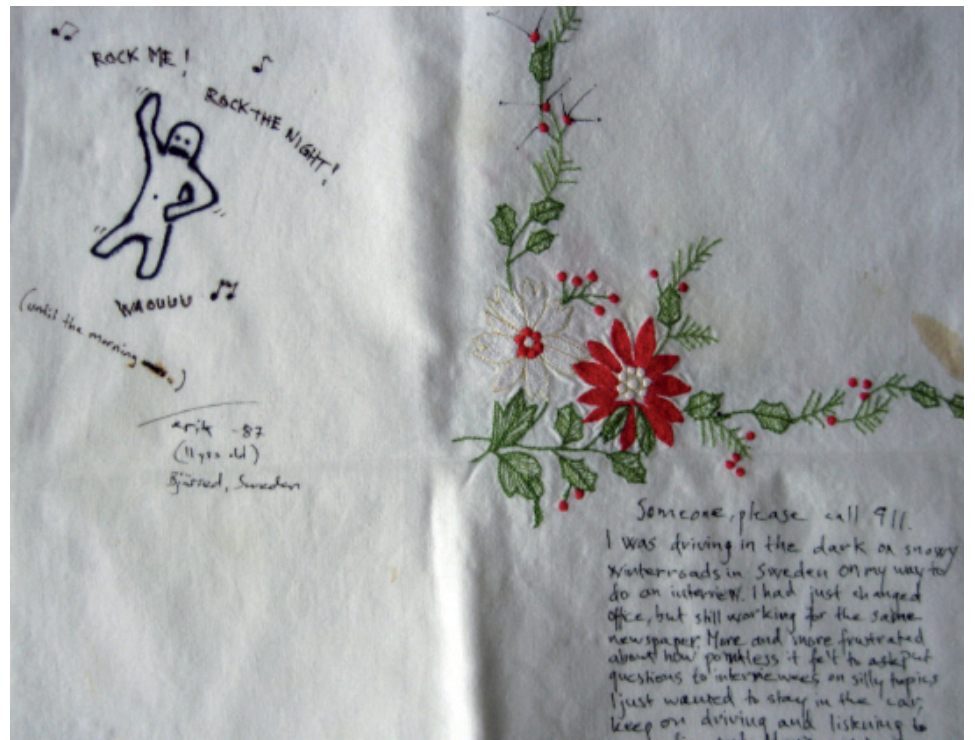 ROCK ME!
ROCK THE NIGHT!
WAOUUU
(until the morning
erik -87
(11 yrs old)
Bjärred, Sweden
Someone, please call 911.
I was driving in the dark on snowy
winterroads in Sweden on my way to
do an interview. I had just changed
office, but still working for the same
newspaper. More and more frustrated
about how pointless it felt to ask/put
questions to interviewees on silly topics
I just wanted to stay in the car,
keep on driving and listening to